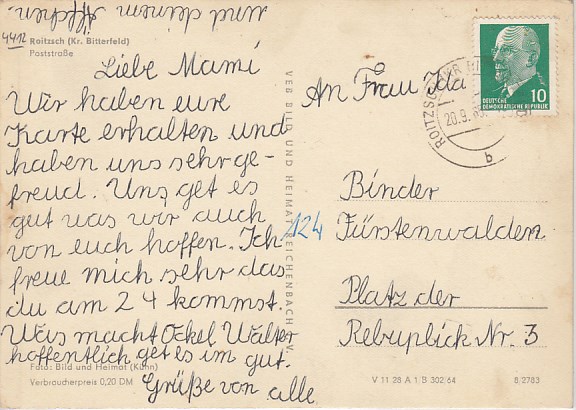 und deinem
4412
Roitzsch (Kr. Bitterfeld)
Poststraße
Liebe Mami
Wir haben eure
Karte erhalten und
haben uns sehr ge-
freud. Uns get es
gut was wir auch
von euch hoffen. Ich
freue mich sehr das
du am 24 kommst.
Was macht Ockel Walter
hoffentlich get es im gut.
Grüße von alle
Foto: Bild und Heimat (Kühn)
Verbraucherpreis 0,20 DM
VEB BILD UND HEIMAT REICHENBACH i. V.
An Frau Ida
Binder
124 Fürstenwalden
Platz der
Rebuplick Nr. 3
10
DEUTSCHE
DEMOKRATISCHE REPUBLIK
ROITZSCH KR BI
20.9.
b
V 11 28 A 1 B 302/64
8/2783